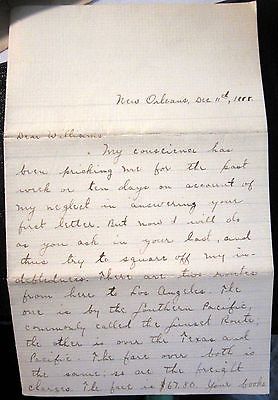 New Orleans, Dec 11th, 1888.
Dear Williams
My conscience has
been pricking me for the past
week or ten days on account of
my neglect in answering your
first letter. But now I will do
as you ask in your last, and
thus try to square off my in-
debtedness. There are two routes
from here to Los Angeles. The
one is by the Southern Pacific,
commonly called the Sunset Route,
the other is over the Texas and
Pacific. The fare over both is
the same; so are the freight
charges. The fare is $67.80. Your books